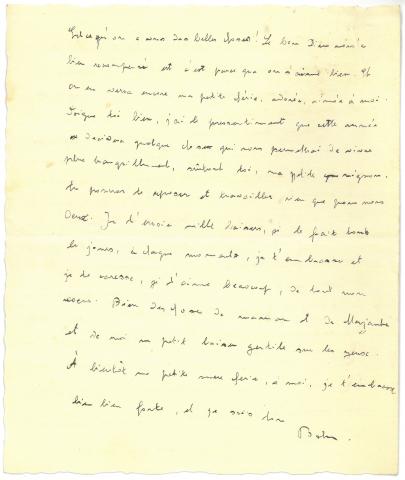 Est-ce qu'on a vu des belles choses! Le bon Dieu nous a
bien récompensé et c'est parce que on s'aime bien. Et
on en verra encore ma petite chérie, adorée, aimée à moi.
Soigne toi bien, j'ai le pressentiment que cette année
décidera quelque chose qui nous permettrai de vivre
plus tranquillement, surtout toi, ma petite mignonne.
tu pourras te reposer et travailler, rien que pour nous
deux. Je t'envoie mille baisers, je le fait tous
les jours, à chaque moments, je t'embrasse et
je te caresse, je t'aime beaucoup, de tout mon
coeur. Bien des choses de maman et de
et de moi un petit baiser gentil sur les yeux.
À bientôt ma petite chérie, à moi, je t'embrasse
bien bien forte, et je suis ton